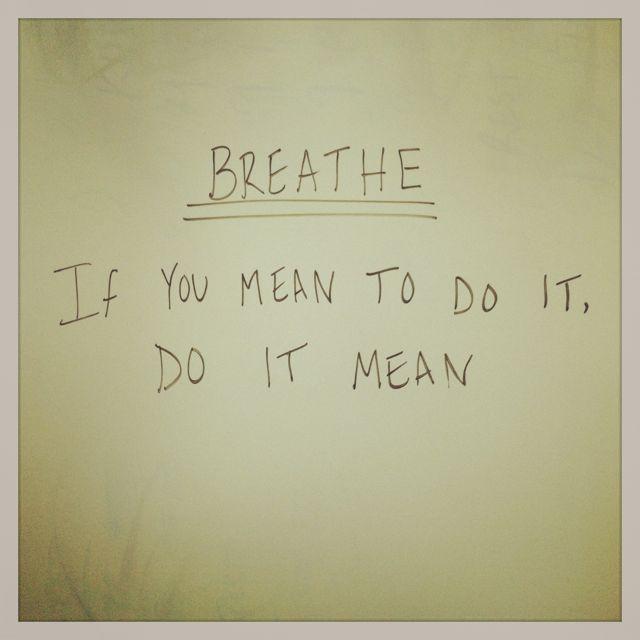 BREATHE
If YOU MEAN TO DO IT,
DO IT MEAN